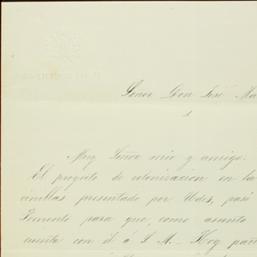 Señor Don José Ma
Muy Señor mio y amigo.
El proyecto de colonizacion en la
presentado por Udes, pasó
Fomento para que, como asunto
cuenta con el á S. M. Hoy